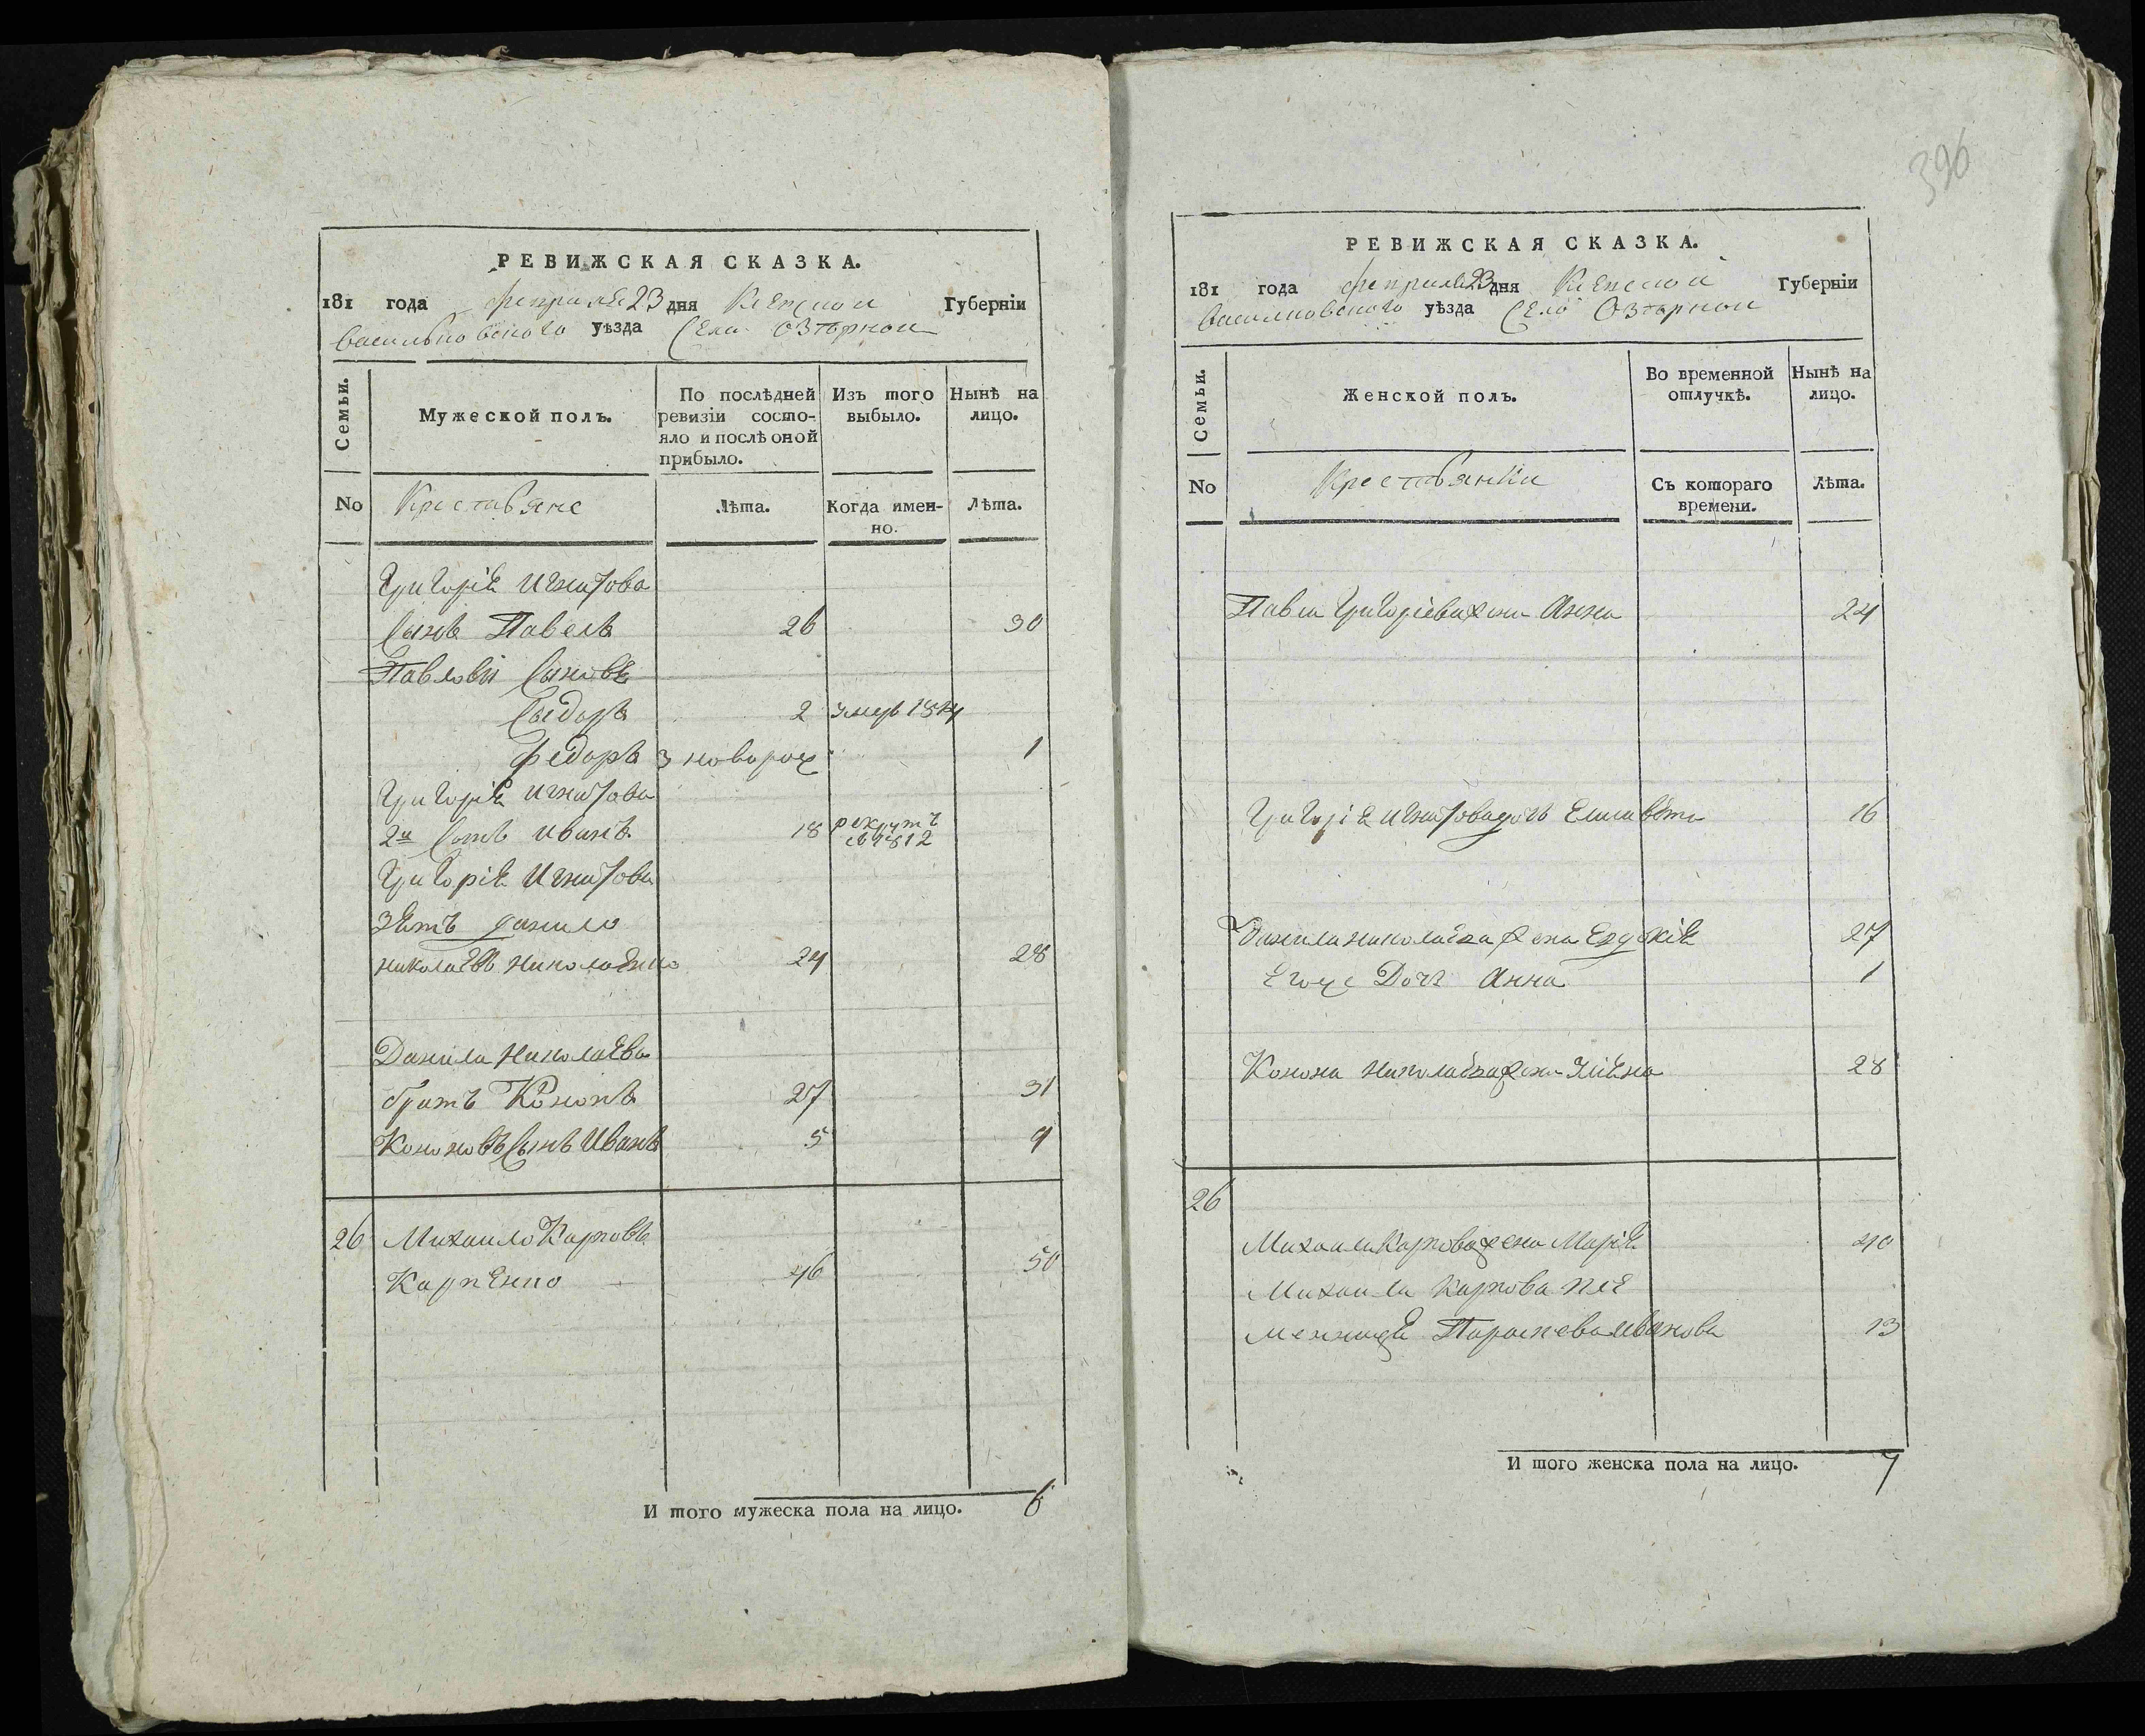 РЕВИЖСКАЯ СКАЗКА.
181 года февраля 23 дня Киевской Губерніи
Васильковского уѣзда Села Озѣрной
Семьи.
Мужеской полъ.
По послѣдней ревизіи состо-
яло и послѣ оной
прибыло.
Изъ того
выбыло.
Нынѣ на
лицо.
No Крестьяне Лѣта. Когда имен-
но. Лѣта.
Григорія Игнатова
Сынъ Павелъ 26 30
Павловы Сыновя
Сидоръ 2 умер 1814
Федоръ з новорож 1
Григорія Игнатова
2й Сынъ Иванъ 18 рекрутъ
въ 1812
Григорія Игнатова
Зять Данило
Николаевъ Николаенко 24 28
Данила Николаева
братъ Кононъ 27 31
Кононовъ Сынъ Иванъ 5 9
26 Михаило Карповъ
Карпенко 46 50
И того мужеска пола на лицо. 6
396
РЕВИЖСКАЯ СКАЗКА.
181 года февраля 23 дня Киевской Губерніи
Васильковского уѣзда Села Озѣрной
Семьи.
Женской полъ.
Во временной
отлучкѣ.
Нынѣ на
лицо.
No Крестьянки Съ котораго
времени. Лѣта.
Павла Григоріева жена Анна 24
Григорія Игнатова дочь Елисавета 16
Данила Николаева жена Евдокія 27
Егоже Дочь Анна 1
Конона Николаева жена 28
26
Михаила Карпова жена Марія 40
Михаила Карпова пле
менница Параскева Иванова 13
И того женска пола на лицо. 7